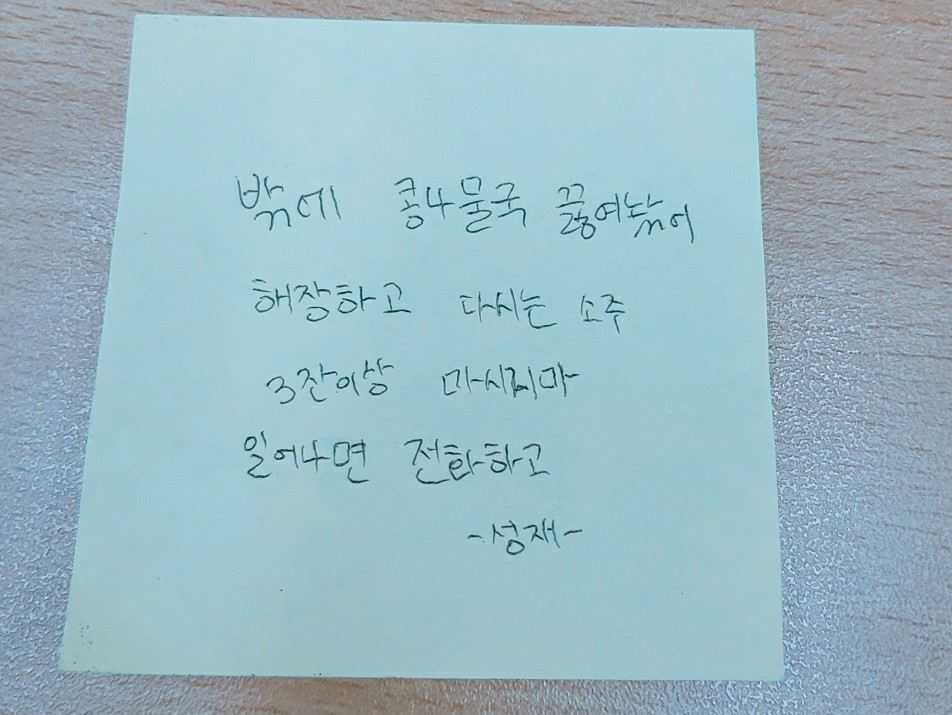 밖에 콩나물국 끓여놨어
해장하고 다시는 소주
3잔이상 마시지마
일어나면 전화하고
-성재-